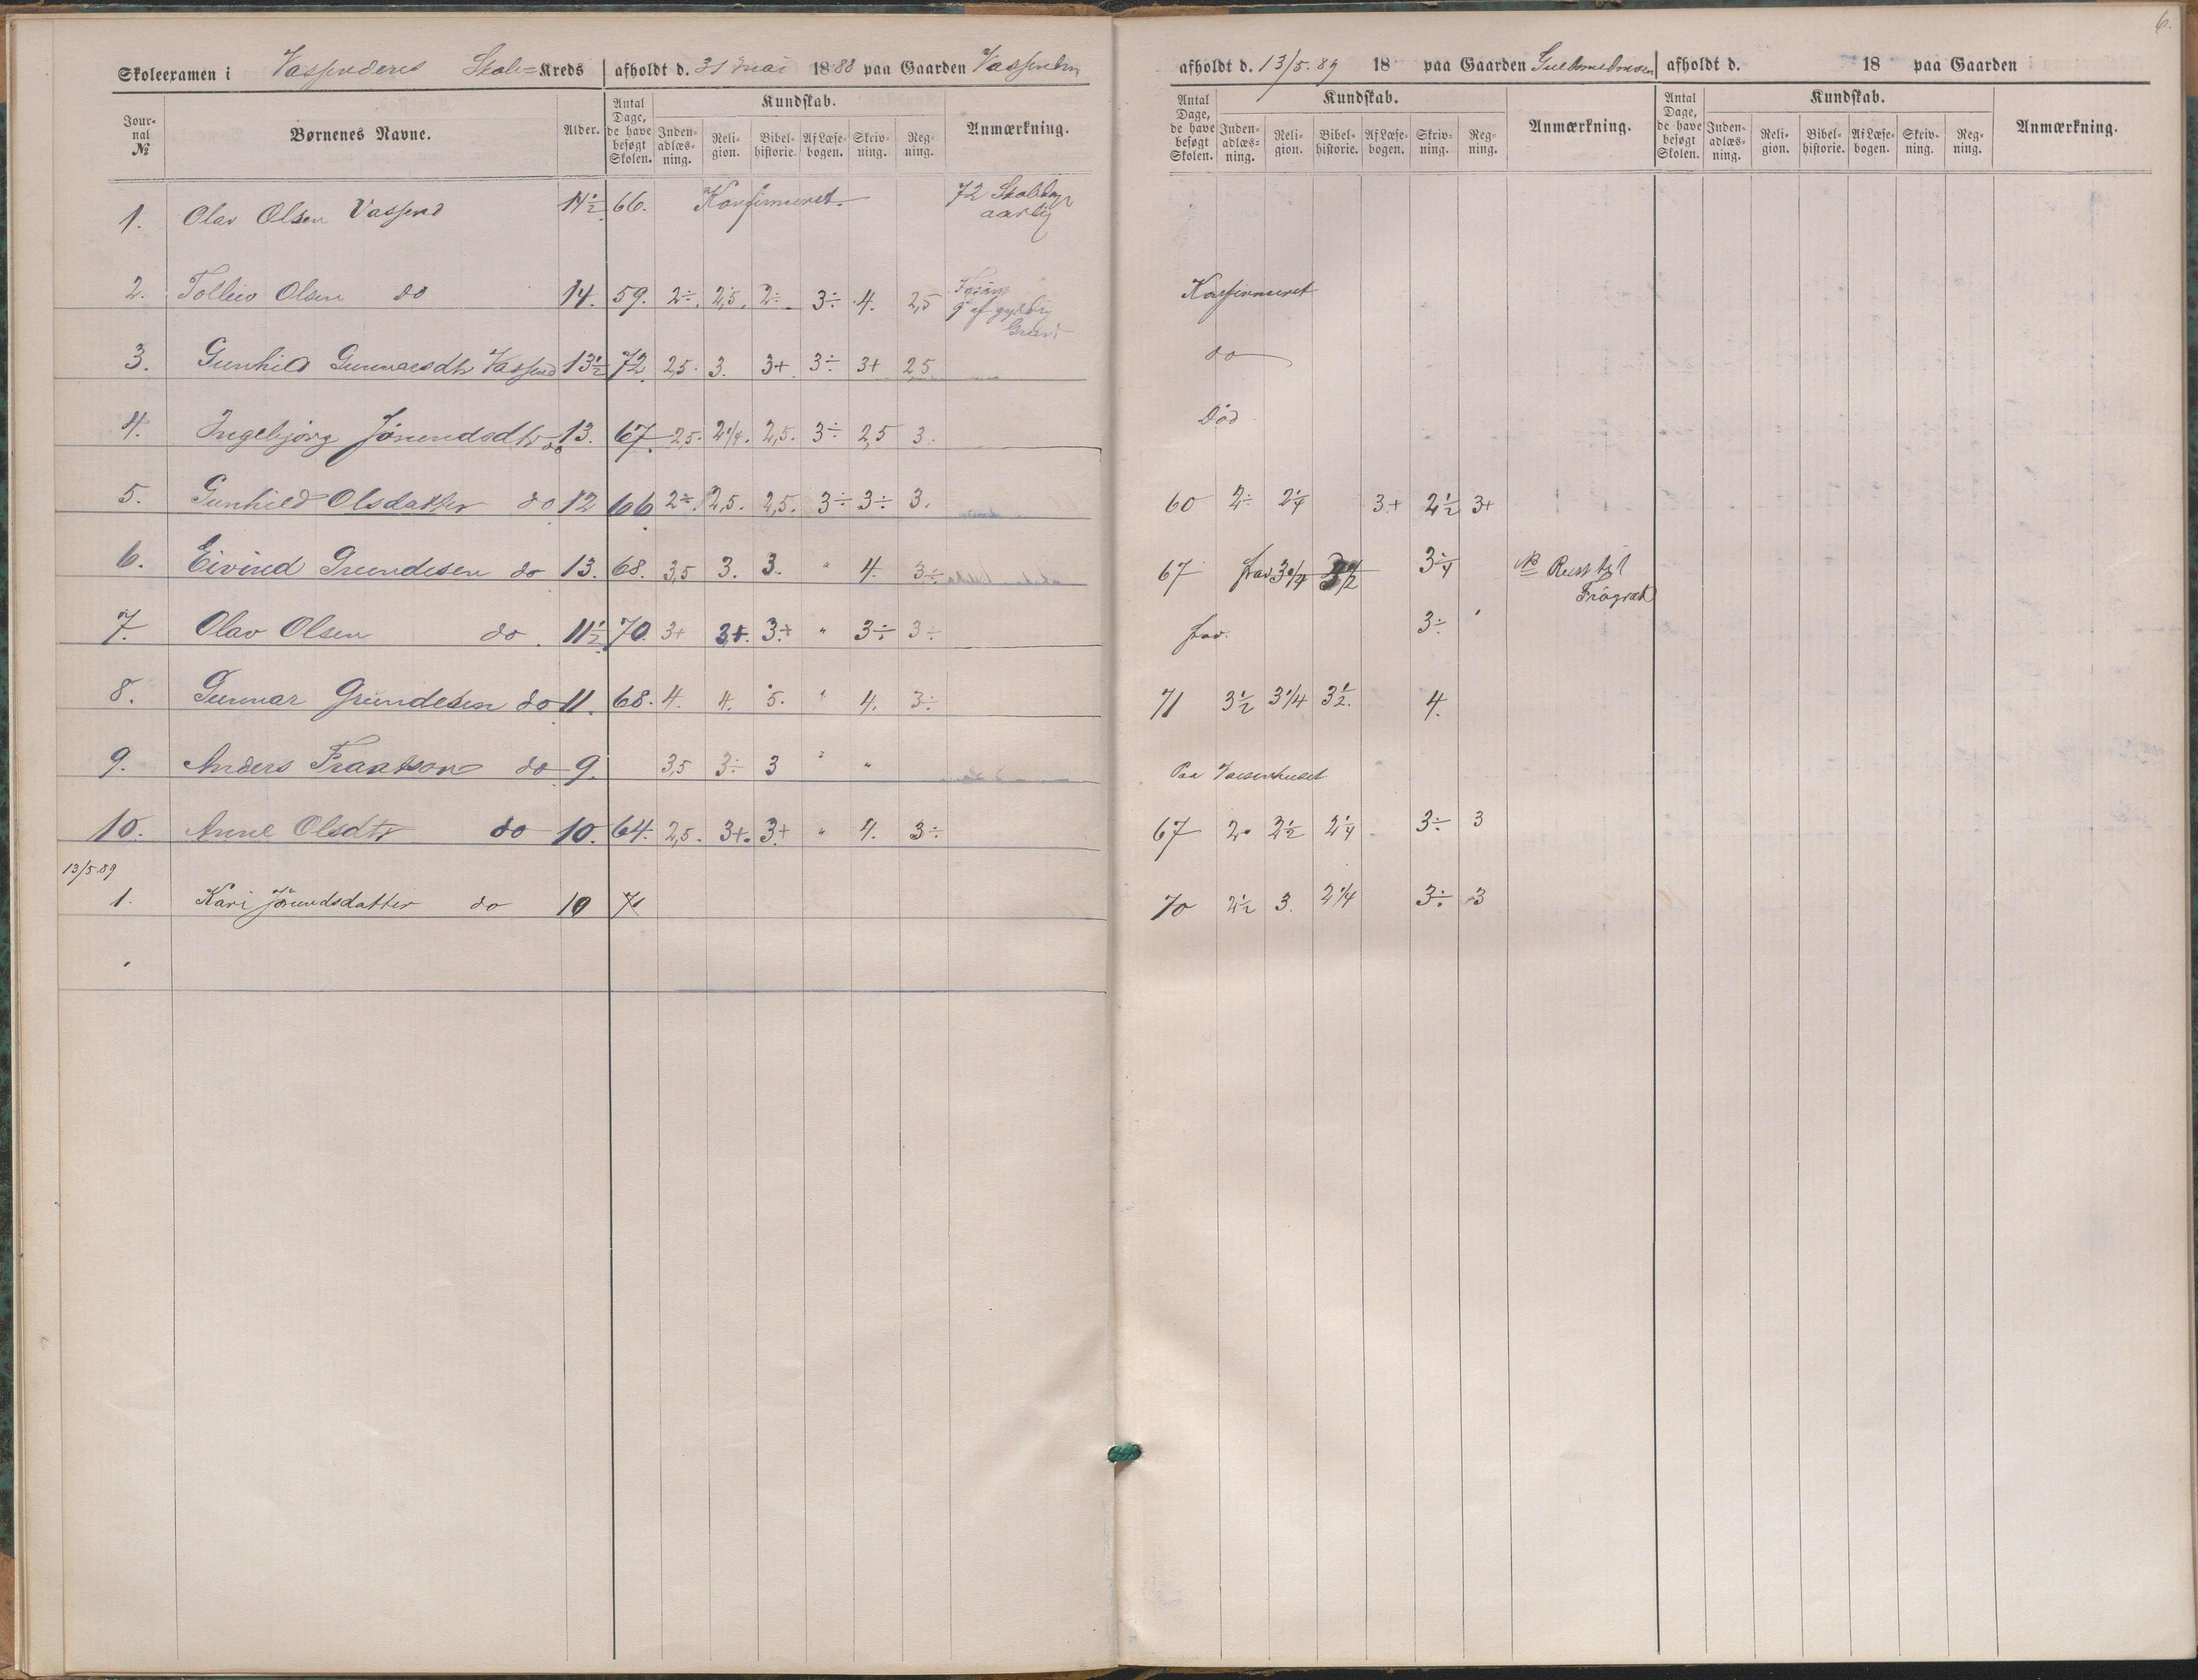 Skoleexamen i Skole=Kreds afholdt d. 31 mai 1888 paa Gaarden
Jour-nal № Børnenes Navne. Alder. Antal Dage, de have besøgt Skolen. Kundskab. Inden-adlæs-ning. Reli-gion. Bibel-historie. Af Læse-bogen. Skriv-ning. Reg-ning. Anmærkning.
1. Olav Olsen Vassend 14½ 66. Konfirmeret 72 Skoledage aarlig
2. Tolleiv Olsen do 14. 59. 2÷. 2,5. 2÷. 3÷ 4. 2,5 9 af gyldig Grund
3. Gunhild Gunnarsdtr Vassend 13½ 72 2,5. 3. 3+. 3÷ 3+ 2,5
4. Ingebjørg Jørundsdtr do 13. 67. 2,5. 2¼. 2,5. 3÷ 2,5 3.
5. Gunhild Olsdatter do 12 66 2÷. 2,5. 2,5. 3÷ 3÷ 3.
6. Eivind Grundesen do 13. 68. 3,5 3. 3. " 4. 3÷
7. Olav Olsen do. 11½ 70. 3+ 3+. 3÷ " 3÷ 3÷
8. Gunnar Grundesen do 11. 68. 4. 4. 5. " 4. 3÷
9. Anders Fraatson do 9. 3,5 3÷ 3 " "
10. Anne Olsdtr do 10. 64. 2,5. 3+. 3+ " 4. 3÷
13/5 89
1. Kari Jørundsdatter do 10
6.
afholdt d. 13/5.89 18 paa Gaarden
Antal Dage, de have besøgt Skolen. Kundskab. Inden-adlæs-ning. Reli-gion. Bibel-historie. Af Læse-bogen. Skriv-ning. Reg-ning. Anmærkning.
Konfirmeret
do
Død
60 2÷ 2¼ 3+ 2½ 3+
67 frav 3¼ 3¼ NB
frav. 3÷
71 3½ 3¼ 3½. 4.
Paa Vaisenhuset
67 2. 2½ 2¼ 3÷ 3
70 2½ 3. 2¼ 3÷ 3
afholdt d. 18 paa Gaarden
Antal Dage, de have besøgt Skolen. Kundskab. Inden-adlæs-ning. Reli-gion. Bibel-historie. Af Læse-bogen. Skriv-ning. Reg-ning. Anmærkning.